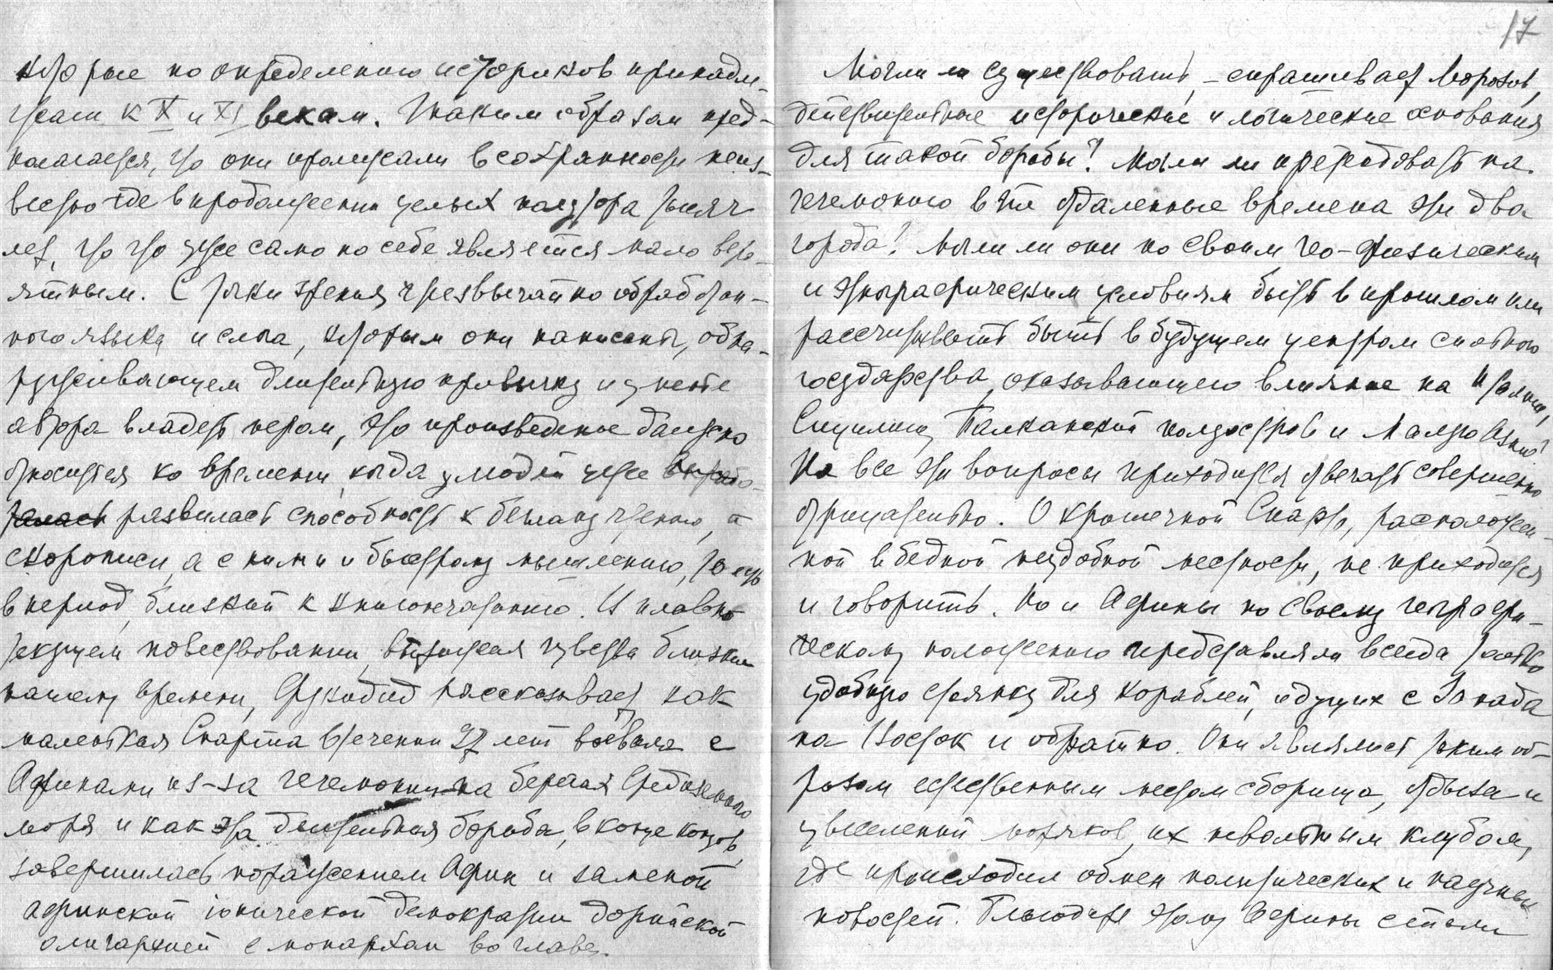 которые по определению историков принадле-
жали к X и XI векам. Таким образом пред-
полагается, что они пролежали в сохранности неиз-
вестно где в продолжении целых полутора тысяч
лет, что уже само по себе является мало веро-
ятным. С точки зрения чрезвычайно обработан-
ного языка и слога, которым они написаны, обна-
руживающем длительную привычку и умение
автора владеть пером, это произведение должно
относится ко времени, когда у людей уже вырабо-
талась развилась способность к беглому чтению, и
скорописи, а с ними и быстрому мышлению, то есть
в период, близкий к книгопечатанию. И плавно
текущем повествовании, выражая чувства близкие
нашему времени, Фукидид рассказывает как
маленькая Спарта в течении 27 лет воевала с
Афинами из-за гегемонии на берегах Средиземного
моря и как эта длительная борьба, в конце концов,
завершилась поражением Афин и заменой
афинской iонической демократии дорийской
олигархией с монархом во главе.
17
Могли ли существовать, – спрашивает Морозов,
действительные исторические и логические основания
для такой борьбы? Могли ли претендовать на
гегемонию в те отдаленные времена эти два
города? Могли ли они по своим гео-физическим
и этнографическим условиям быть в прошлом или
рассчитывать быть в будущем центром сильного
государства, оказывающего влияние на Италию,
Сицилию, Балканский полуостров и Малую Азию?
На все эти вопросы приходится отвечать совершенно
отрицательно. О крошечной Спарте, расположен-
ной в бедной неудобной местности, не приходится
и говорить. Но и Афины по своему географи-
ческому положению представляли всегда только
удобную стоянку для кораблей, идущих с Запада
на Восток и обратно. Они являлись таким об-
разом естественным местом сборища, отдыха и
увеселений моряков, их невольным клубом,
где происходил обмен политических и научных
новостей. Благодаря этому Афины стали